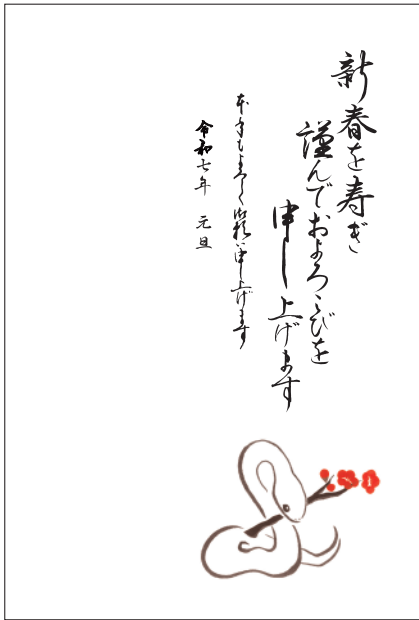 新春を寿ぎ
謹んでおよろこびを
申し上げます
本年もよろしく御願い申し上げます
令和七年 元旦